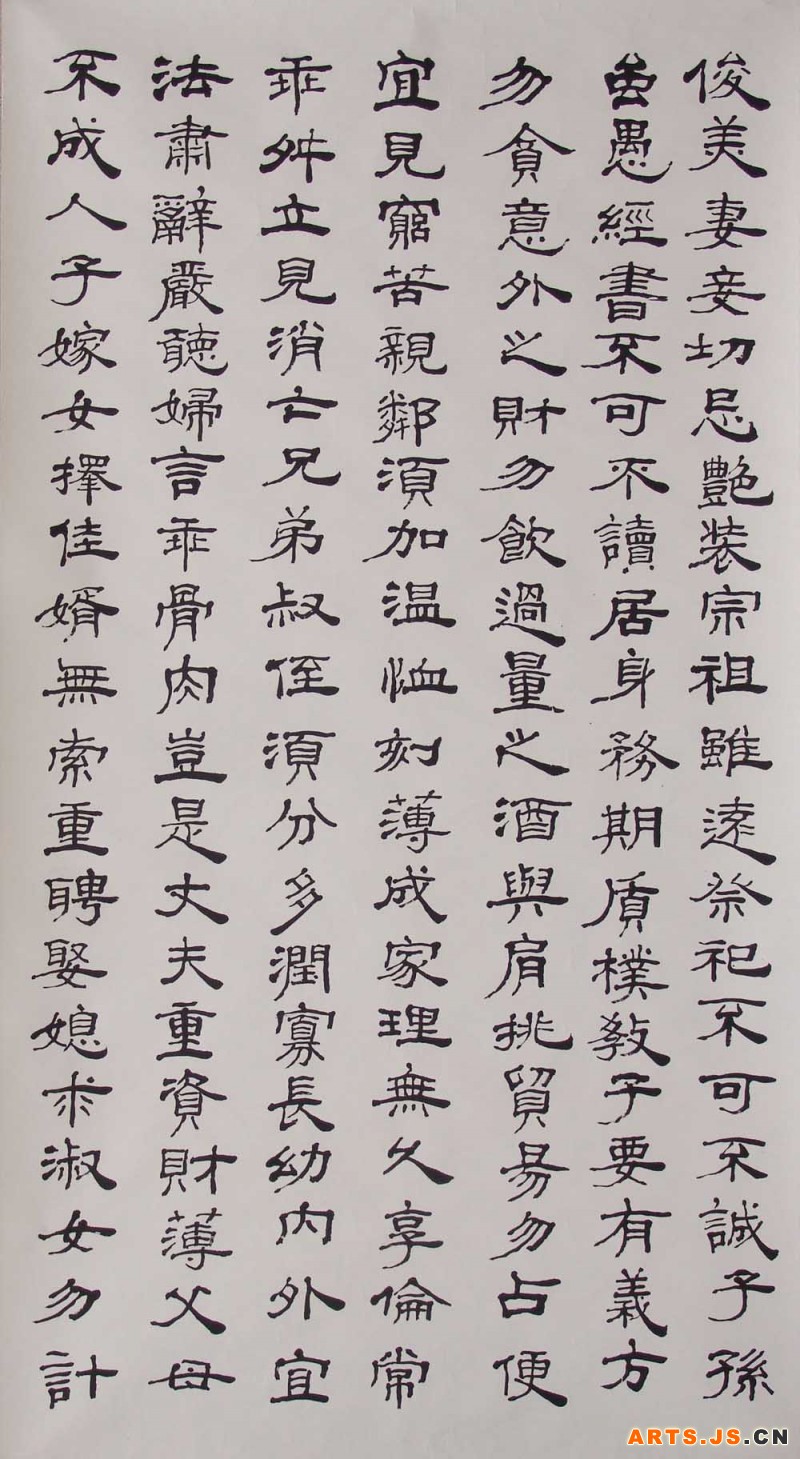 俊美妻妾切忌艷装宗祖雖遠祭祀不可不誠子孫
虽愚經書不可不讀居身務期質樸教子要有義方
勿貪意外之財勿飲過量之酒與肩挑貿易勿占便
宜見窮苦親鄰須加温恤刻薄成家理無久享倫常
乖舛立見消亡兄弟叔侄須分多潤寡長幼内外宜
法肅辭嚴聽婦言乖骨肉豈是丈夫重資財薄父母
不成人子嫁女擇佳婿無索重聘娶媳求淑女勿計
ARTS.JS.CN